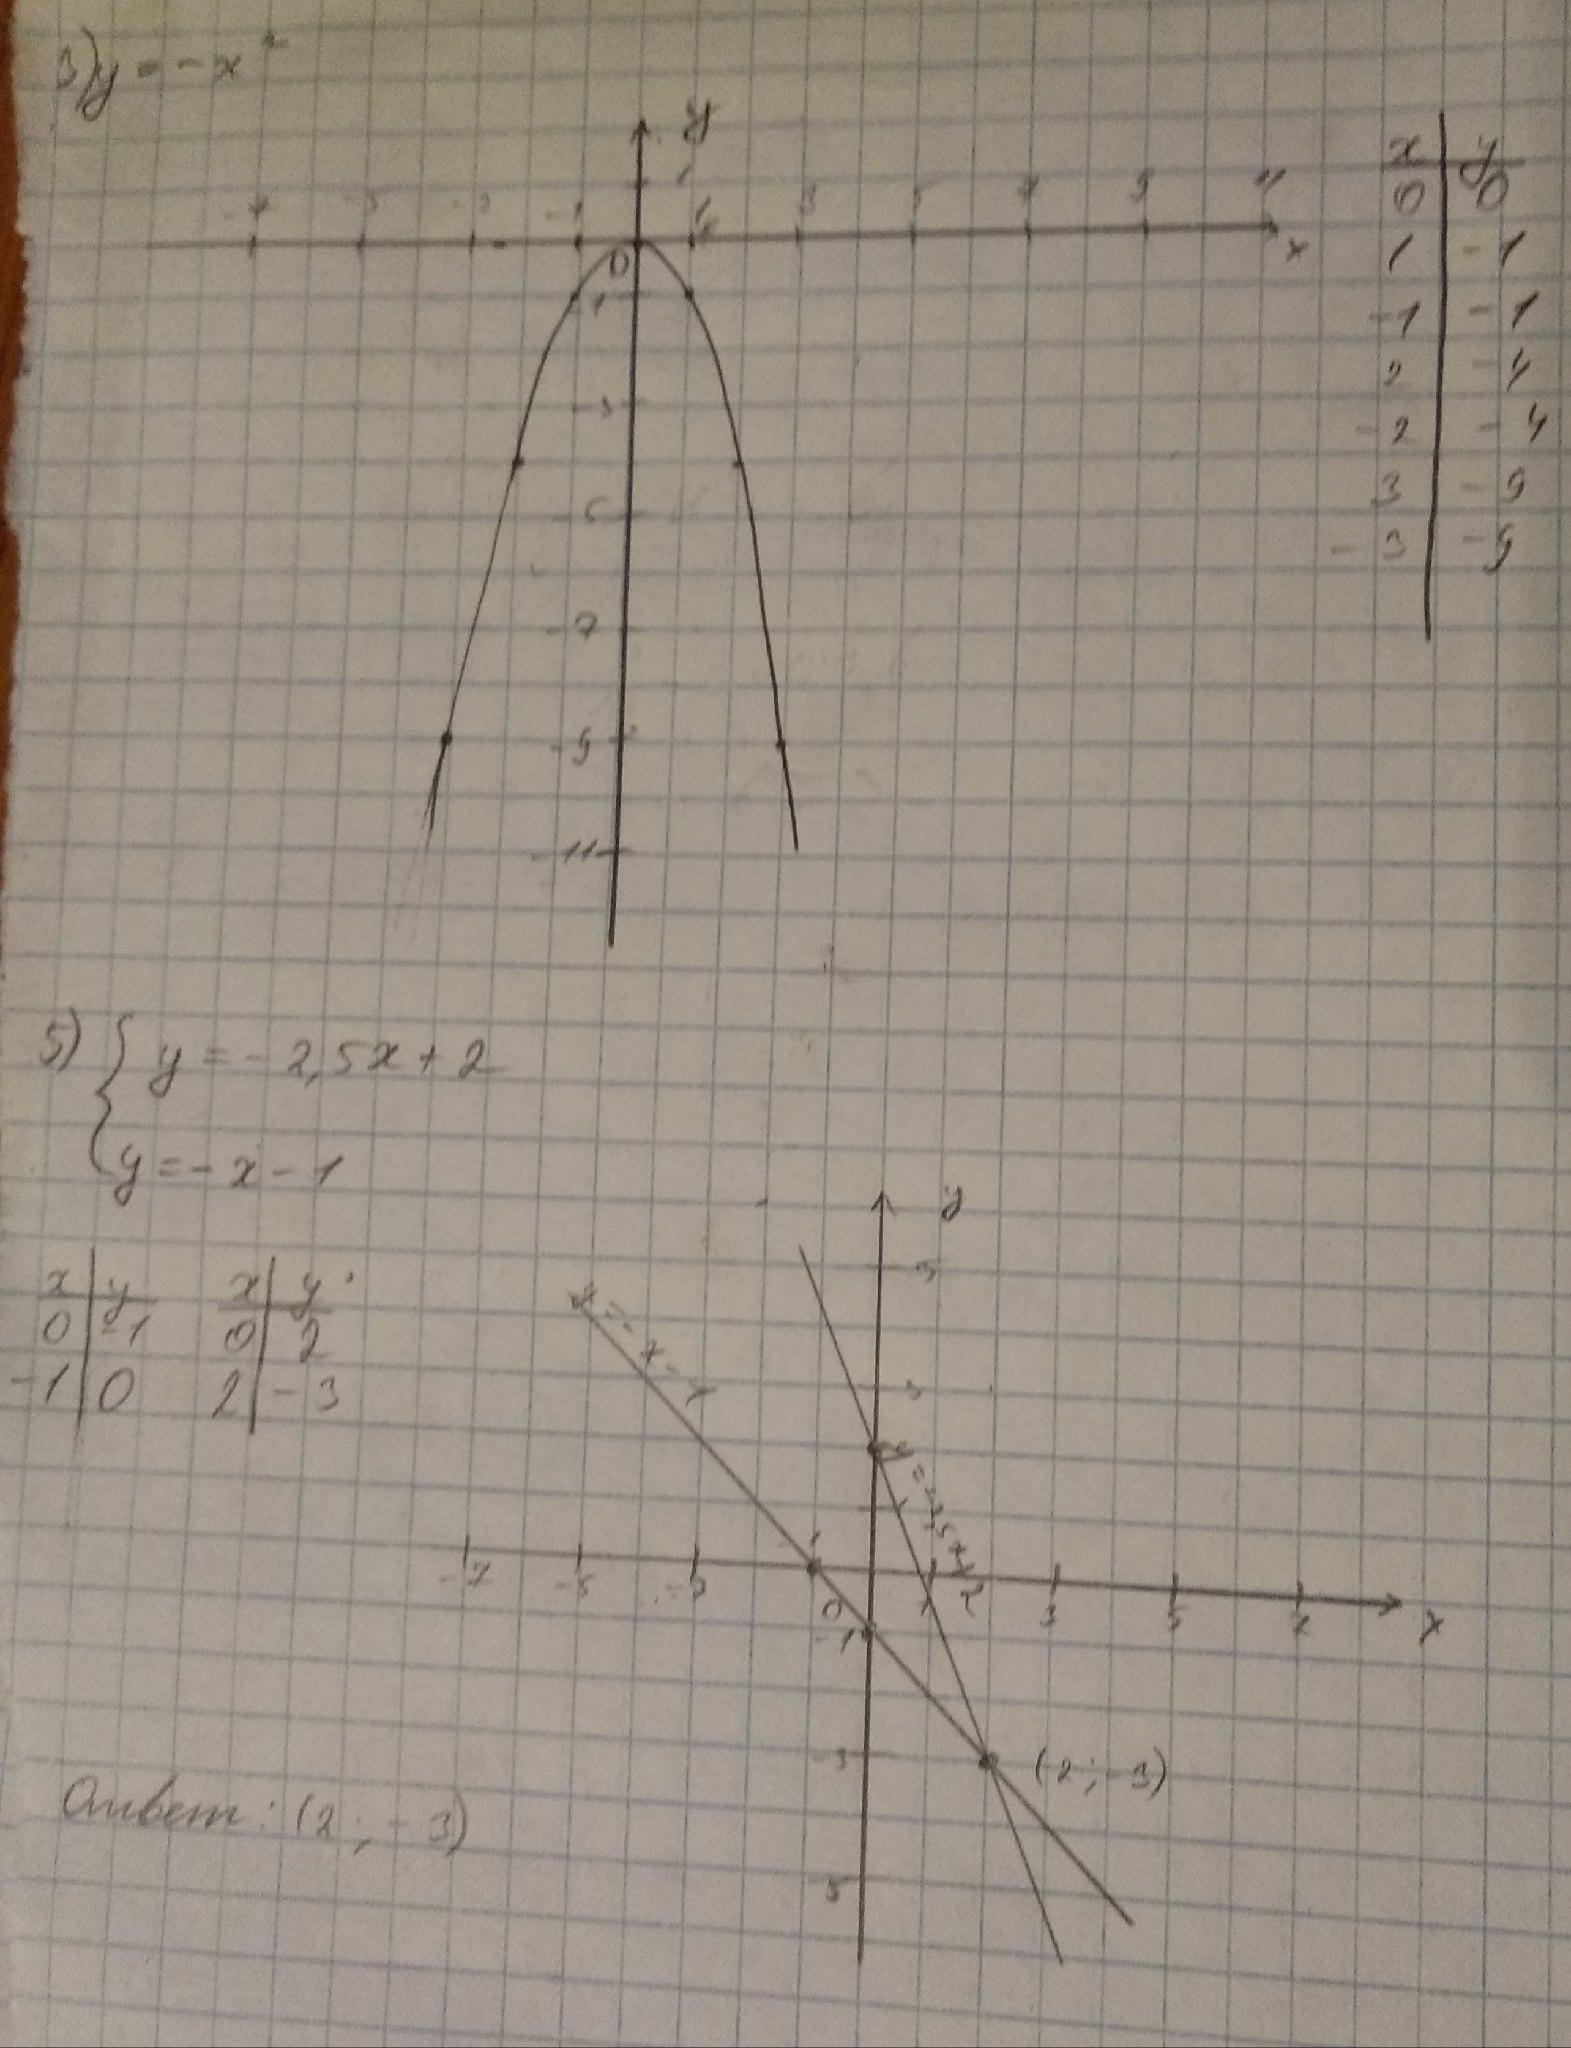 3) y = -x²
y
1
-7 -5 -3 -1 1 3 5 7 9 11
x
0
-1
-3
-5
-7
-9
-11
x y
0 0
1 -1
-1 -1
2 -4
-2 -4
3 -9
-3 -9
5) { y = - 2,5x + 2
y = - x - 1
x y x y
0 -1 0 2
-1 0 2 -3
y
5
3
y = -x - 1
y = -2,5x+2
-7 -5 -3 -1 0 1 3 5 7 x
-1
-3
(2 ; -3)
5
Ответ: (2 ; - 3)